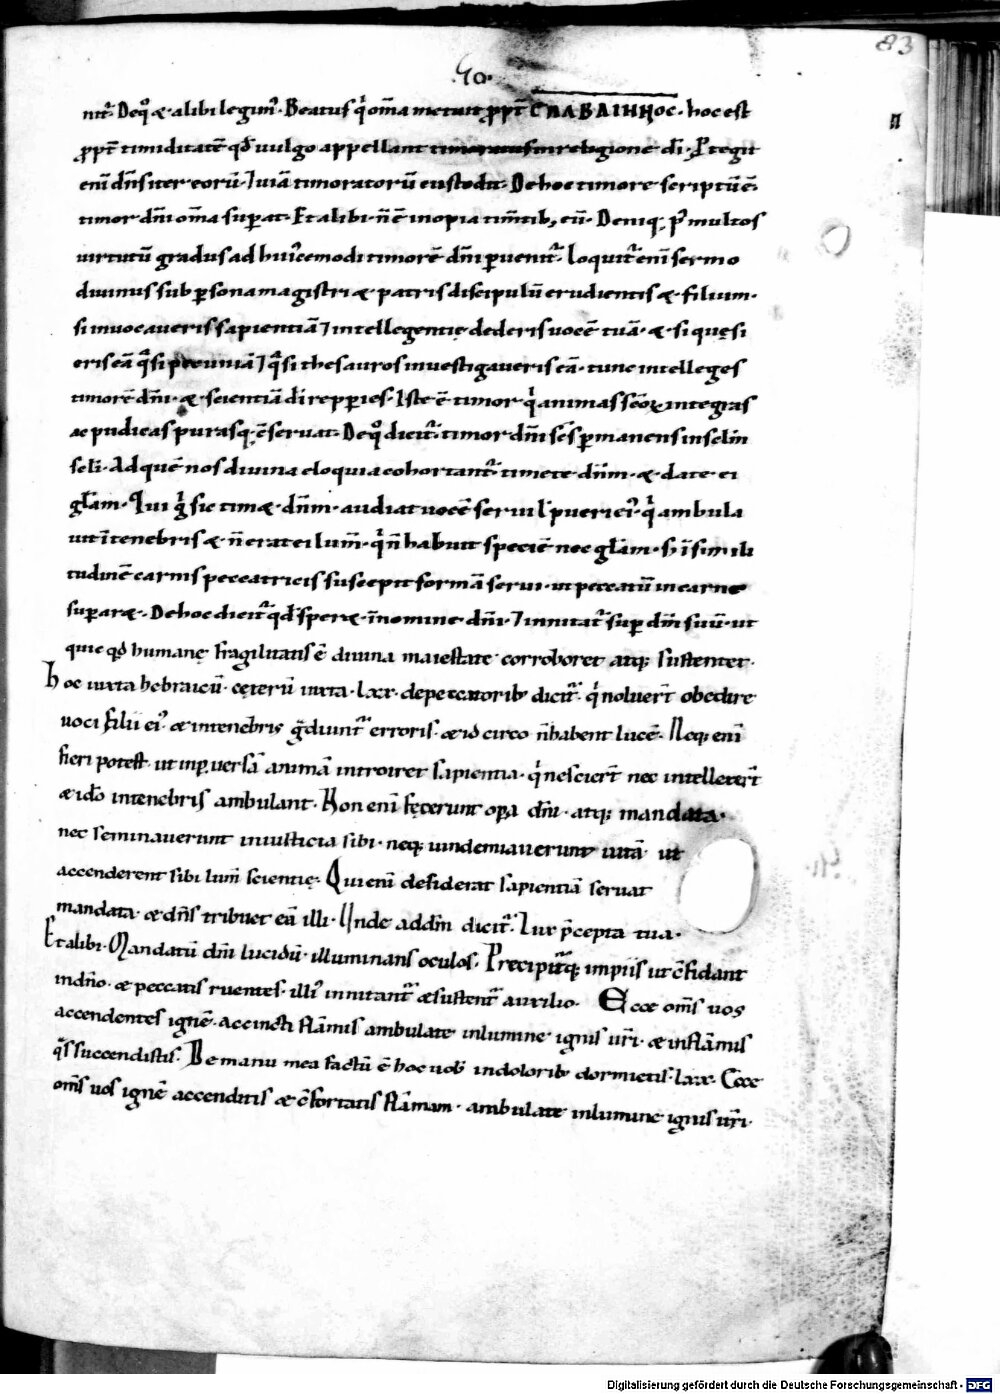 83
50.
nit̄. Deq̊ & alibi legim᷒. Beatus q̍ om̄a metuit ꝓpt̄ ϹΥΛΒΑΙΗΗΟϹ. hoc est
ꝓpt̄ timiditatē qđ vulgo appellant timoratus in religione dī. Ꝓtegit
enī dn̄s iter eorū ⁊ uiā timoratorū custodit. De hoc timore scriptū ē.
timor dn̄i om̄a suꝑat. Et alibi. n̄ ē inopia tim̄tib; eū. Deniq; ꝑ multos
virtutū gradus ad hui᷒cemodi timorē dn̄i ꝑuenit᷑. loquit᷑ enī sermo
divinus sub ꝑsona magistri & patris discipulū erudientis & filium.
si invocaveris sapientiā ⁊ intellegentię dederis vocē tuā. & si quęsi
eris eā q̄si pecuniā ⁊ q̄si thesauros investigaveris eā. tunc intelleges
timorē dn̄i. & scientiā dī repꝑies. Iste ē timor q̍ animas sc̄oꝝ integras
ac pudicas purasq; ꝯservat. De q̊ dicit᷑. timor dn̄i sc̄s ꝑmanens in sclm̄
scli. Ad quē nos divina eloquia cohortant᷑. timete dn̄m. & date ei
gl̄am. Qui g̍ sic tim& dn̄m. audiat vocē servi l̄ pueri ei᷒. q̍ ambula
vit ī tenebris & n̄ erat ei lum̄. q̍ n̄ habuit speciē nec gl̄am. s; ī simili
tudinē carnis peccatricis suscepit formā servi. ut peccatū in carne
suꝑar&. De hoc dicit᷑ qđ sper& in nomine dn̄i. ⁊ innitat᷑ suꝑ dm̄ suū. ut
quic qđ humanę fragilitatis ē divina maiestate corroboret atq; sustentet.
Hoc iuxta hebraicū. cęterū iuxta .lxx. de peccatorib; dicit᷑. q̍ noluer̄t obedire
voci filii ei᷒. & in tenebris g̃diunt᷑ erroris. & idcirco n̄ habent lucē. Neq; enī
fieri potest. ut in ꝑversā animā introiret sapientia. q̍ nescier̄t nec intellexer̄t
& ido̅ in tenebris ambulant. Non enī fęcerunt oꝑa dn̄i. atq; mandata.
nec seminaverunt in iusticia sibi. neq; vindemiaverunt vitā ut
accenderent sibi lum̄ scientię. Qui enī desiderat sapientiā servat
mandata. & dn̄s tribuet eā illi. Unde ad dm̄ dicit᷑. Lux p̄cepta tua.
Et alibi. Mandatū dn̄i lucidū. illuminans oculos. Precipit᷑q; impiis ut ꝯfidant
in dn̄o. & peccatis ruentes. illi᷒ innitant᷑ & sustent᷑ auxilio. Ecce om̄s vos
accendentes ignē. accincti flāmis ambulate in lumine ignis vr̄i. & in flāmis
q̃s succendistis. De manu mea factū ē hoc vob̄ in dolorib; dormietis. lxx. Ecce
om̄s vos ignē accenditis & ꝯfortatis flāmam. ambulate in lumine ignis vr̄i.
Digitalisierung gefördert durch die Deutsche Forschungsgemeinschaft - DFG